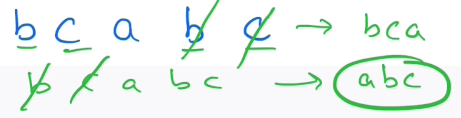 b c a b c → bca
b c a b c → abc